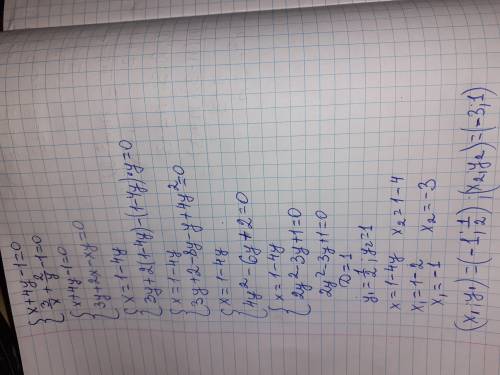 { x+4y-1=0
{ 3/x + 2/y - 1=0
{ x+4y-1=0
{ 3y+2x-xy=0
{ x=1-4y
{ 3y+2(1-4y)-(1-4y)·y=0
{ x=1-4y
{ 3y+2-8y-y+4y²=0
{ x=1-4y
{ 4y²-6y+2=0
{ x=1-4y
{ 2y²-3y+1=0
2y²-3y+1=0
D=1
y₁=1/2, y₂=1
x=1-4y x₂=1-4
x₁=1-2 x₂=-3
x₁=-1
(x₁y₁)=(-1; 1/2); (x₂y₂)=(-3; 1)